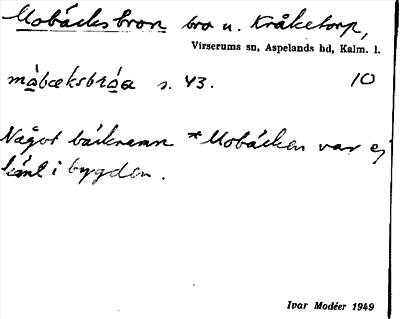 Mobäcksbron bro u. Kråketorp,
Virserums sn, Aspelands hd, Kalm. l.
måbæksbróa s. 43. 10
Något bäcknamn *Mobäcken var ej
känt i bygden.
Ivar Modéer 1949